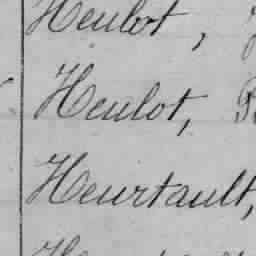 Heulot,
Heulot,
Heurtault,